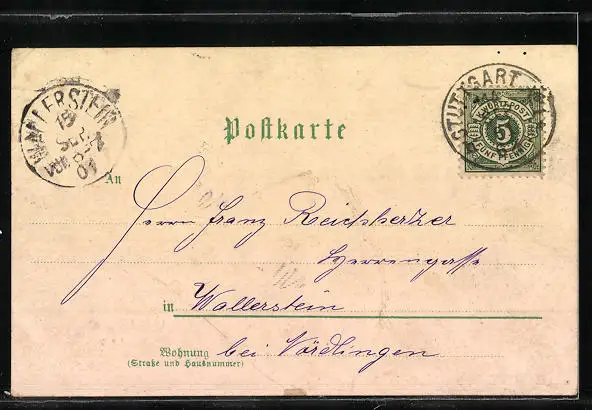 WALLERSTEIN
18
SEP
01
STUTTGART
K.WÜRT.POST
5
FÜNF PFENNIG
Postkarte
An
Herrn Franz Reichsherzer
Herrengasse
in Wallerstein
Wohnung bei Nördlingen
(Straße und Hausnummer)